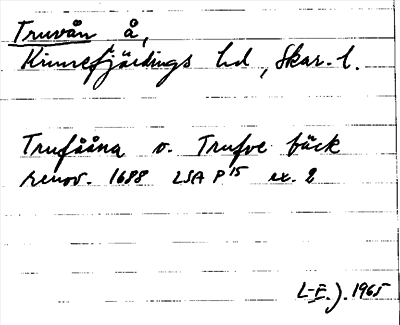 Truvån å,
Kinnefjärdings hd, Skar. l.
Trufååna o. Trufve bäck
renov. 1688 LSA P15 ex. 2
L-E. J. 1965